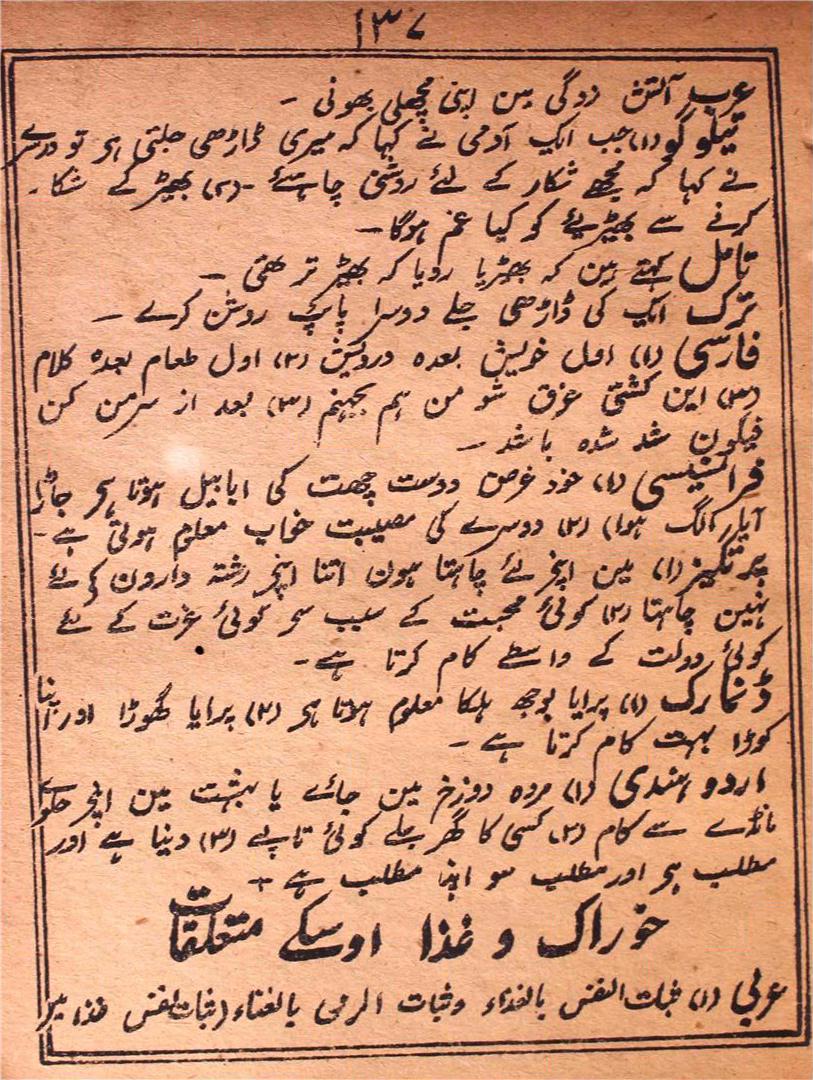 ۱۳۷
عرب آتش زدگی مین اپنی مچھلی بھونی -
تیلوگو (۱) جب ایک آدمی نے کہا کہ میری ڈاڑھی جلتی ہے تو دوسرے
نے کہا کہ مجھے شکار کے لئے روشنی چاہئے - (۲) بھیڑ کے شکا -
کرنے سے بھیڑیے کو کیا غم ہوگا -
تامل کہتے ہین کہ بھڑیا رویا کہ بھیڑ تر تھی -
ترک ایک کی ڈاڑھی جلے دوسرا پائپ روشن کرے -
فارسی (۱) اول خویش بعدہ درویش (۲) اول طعام بعدہ کلام
(۳) این کشتی غرق شو من ہم بجہنم (۳) بعد از سر من کن
فیکون شد شدہ باشد -
فرانسیسی (۱) خود غرض دوست چھت کی ابابیل ہوتا ہے جاڑا
آیا (الگ ہوا) (۲) دوسرے کی مصیبت خواب معلوم ہوتی ہے -
پرتگیز (۱) مین اپنے لئے چاہتا ہون اتنا اپنے رشتہ دارون کے لئے
نہین چاہتا (۲) کوئی محبت کے سبب سے کوئی عزت کے لئے
کوئی دولت کے واسطے کام کرتا ہے -
ڈنمارک (۱) پرایا بوجھ ہلکا معلوم ہوتا ہے (۲) پرایا گھوڑا اور اپنا
کوڑا بہت کام کرتا ہے -
اردو ہندی (۱) مردہ دوزخ مین جائے یا بہشت مین اپنے حلوے
مانڈے سے کام (۲) کسی کا گھر جلے کوئی تاپے (۳) دنیا ہے اور
مطلب ہے اور مطلب سو اپنا مطلب ہے -
خوراک و غذا اوسکے متعلقات
عربی (۱) ثبات النفس بالغذاء وثبات الرمی بالغناء (ثبات نفس غذا مین